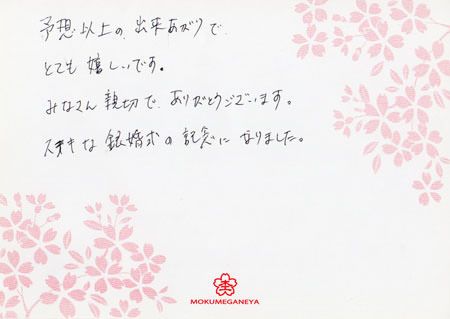 予想以上の出来あがりで
とても嬉しいです。
みなさん親切で、ありがとうございます。
ステキな銀婚式の記念になりました。
MOKUMEGANEYA